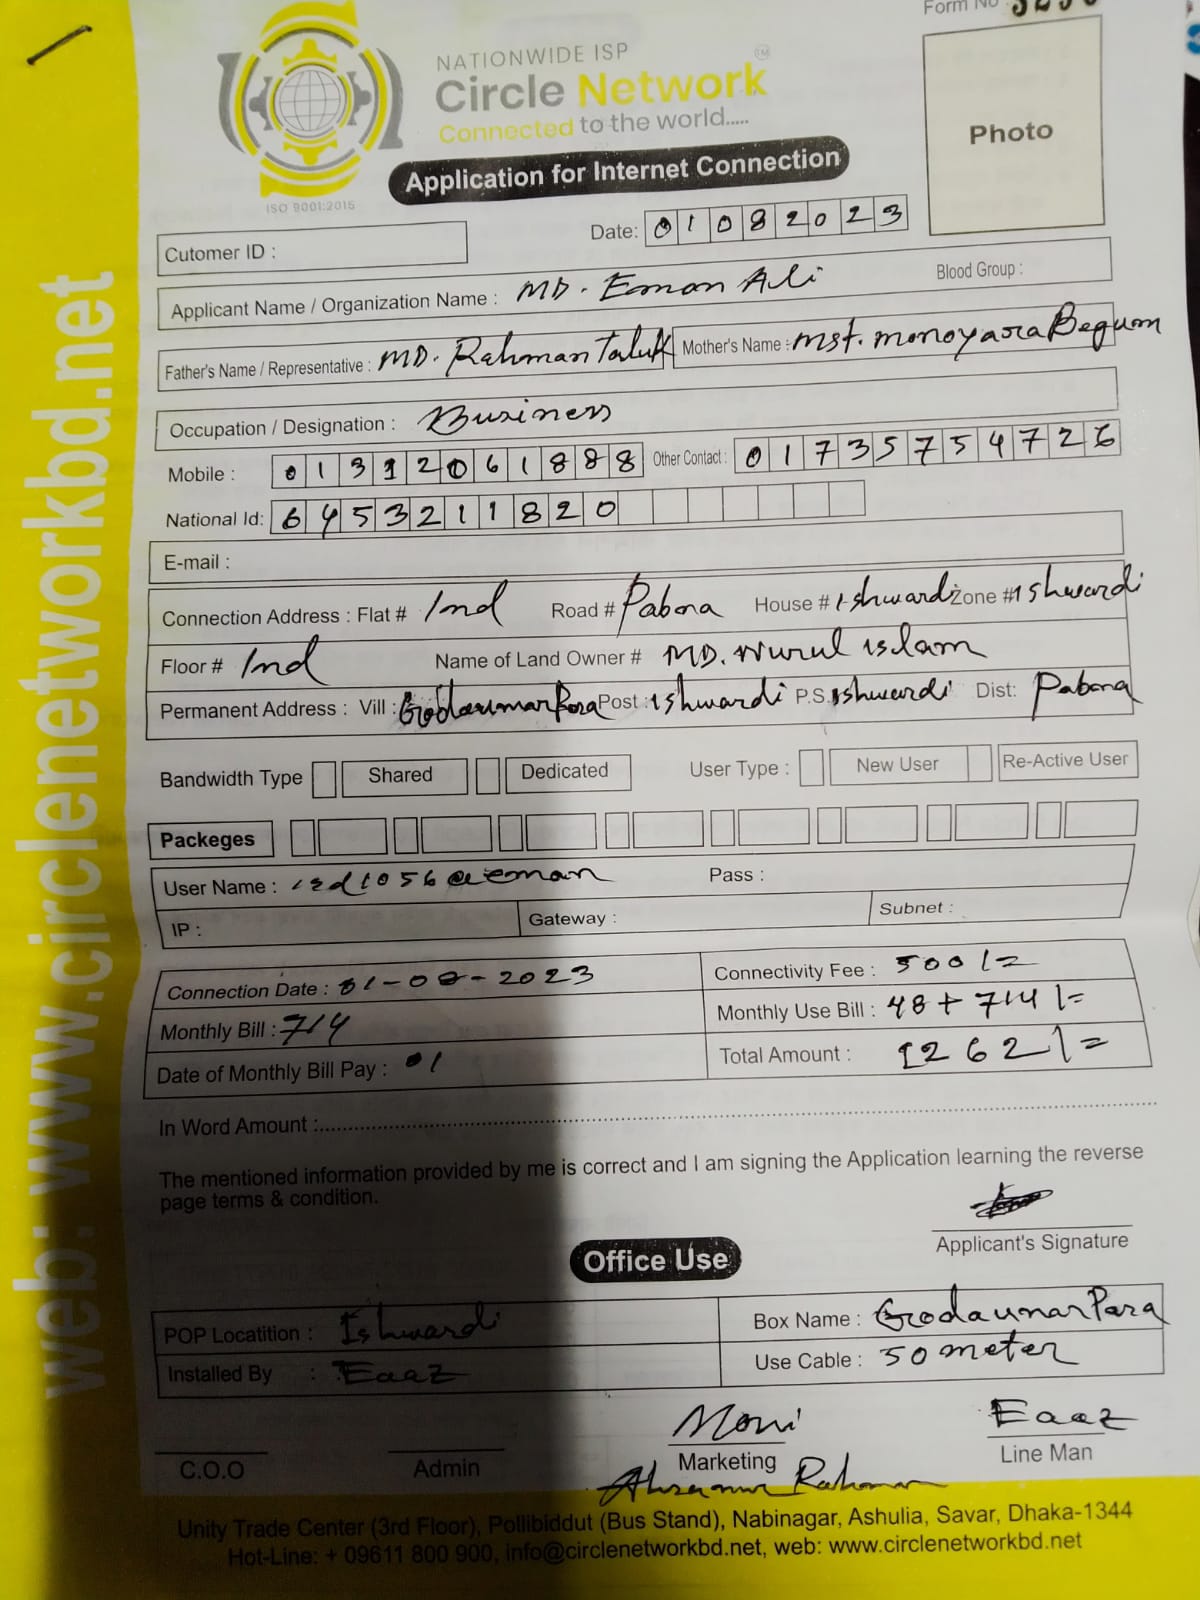 Form No
NATIONWIDE ISP
Circle Network
Connected to the world.....
ISO 9001:2015
Photo
Application for Internet Connection
Date: 01082023
Cutomer ID :
Applicant Name / Organization Name : MD. Eman Ali Blood Group :
Father's Name / Representative : MD. Rahman Taluk Mother's Name : Mst. Monoyara Begum
Occupation / Designation : Business
Mobile : 01312061888 Other Contact : 01735754726
National Id: 6453211820
E-mail :
Connection Address : Flat # Ind Road # Pabna House # Ishwardi Zone # Ishwardi
Floor # Ind Name of Land Owner # MD. Nurul islam
Permanent Address : Vill : GodaunarPara Post : Ishwardi P.S. Ishwardi Dist: Pabna
Bandwidth Type Shared Dedicated User Type : New User Re-Active User
Packeges
User Name : isd1056@eman Pass :
IP : Gateway : Subnet :
Connection Date : 01-08-2023 Connectivity Fee : 500/=
Monthly Bill : 714 Monthly Use Bill : 48 + 714/=
Date of Monthly Bill Pay : 01 Total Amount : 1262/=
In Word Amount :
The mentioned information provided by me is correct and I am signing the Application learning the reverse
page terms & condition.
Applicant's Signature
Office Use
POP Locatition : Ishwardi Box Name : GrodaunarPara
Installed By : Eaaz Use Cable : 50 meter
Moni Eaaz
C.O.O Admin Marketing Line Man
Rahman
Unity Trade Center (3rd Floor), Pollibiddut (Bus Stand), Nabinagar, Ashulia, Savar, Dhaka-1344
Hot-Line: + 09611 800 900, info@circlenetworkbd.net, web: www.circlenetworkbd.net
web: www.circlenetworkbd.net